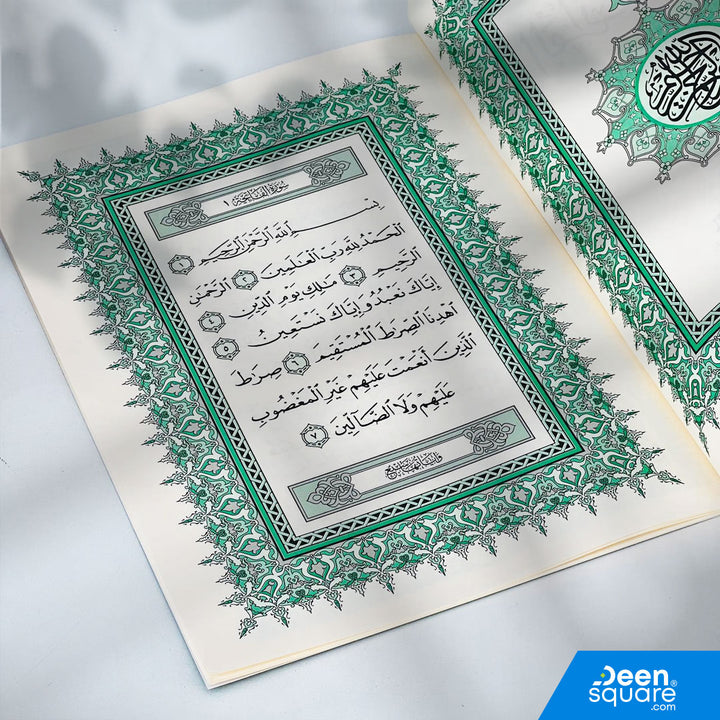 سُورَةُ الْفَاتِحَةِ ١
بِسْمِ ٱللَّهِ ٱلرَّحْمَٰنِ ٱلرَّحِيمِ ١
ٱلْحَمْدُ لِلَّهِ رَبِّ ٱلْعَٰلَمِينَ ٢ ٱلرَّحْمَٰنِ
ٱلرَّحِيمِ ٣ مَٰلِكِ يَوْمِ ٱلدِّينِ ٤
إِيَّاكَ نَعْبُدُ وَإِيَّاكَ نَسْتَعِينُ ٥
ٱهْدِنَا ٱلصِّرَٰطَ ٱلْمُسْتَقِيمَ ٦ صِرَٰطَ
ٱلَّذِينَ أَنْعَمْتَ عَلَيْهِمْ غَيْرِ ٱلْمَغْضُوبِ
عَلَيْهِمْ وَلَا ٱلضَّآلِّينَ ٧
Deen
square®
.com